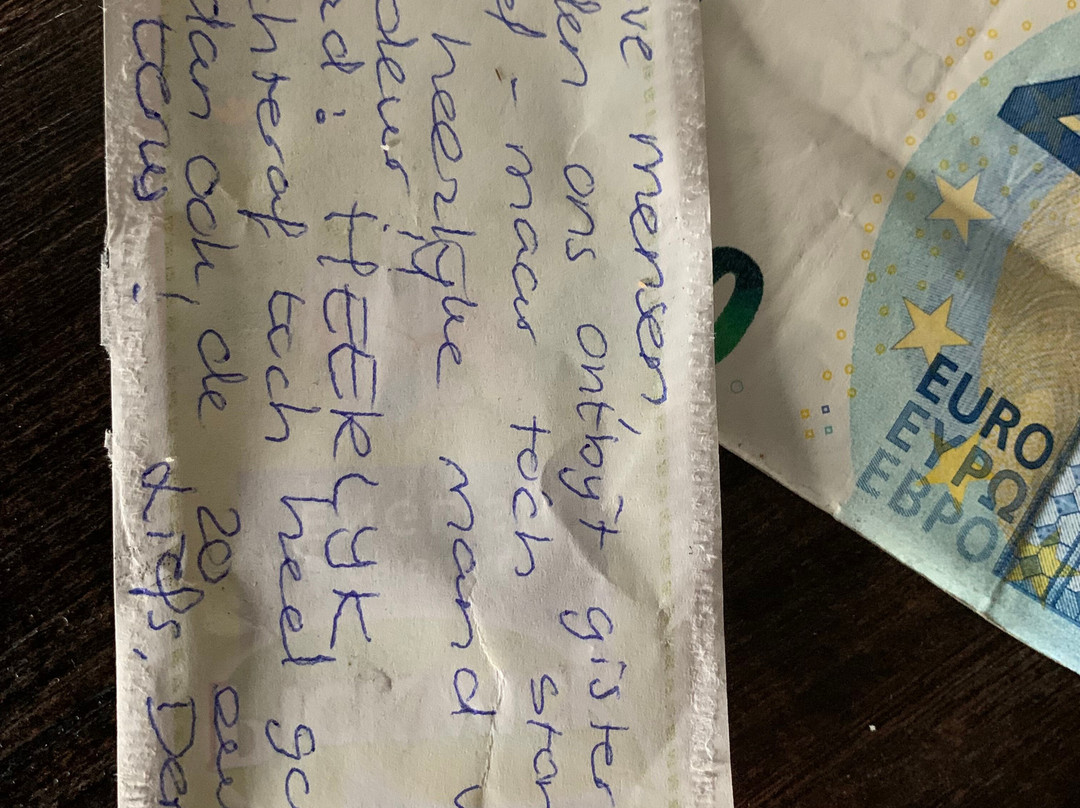 ve mensen
den ons ontbyt gister
ef - maar toch ston
heerlyke mand v
deur
rd: HEERLYK
chteraf toch heel go
dan ook, de 20 eu
terug. Liefs, De
20
EURO
ΕΥΡΩ
ЕВРО